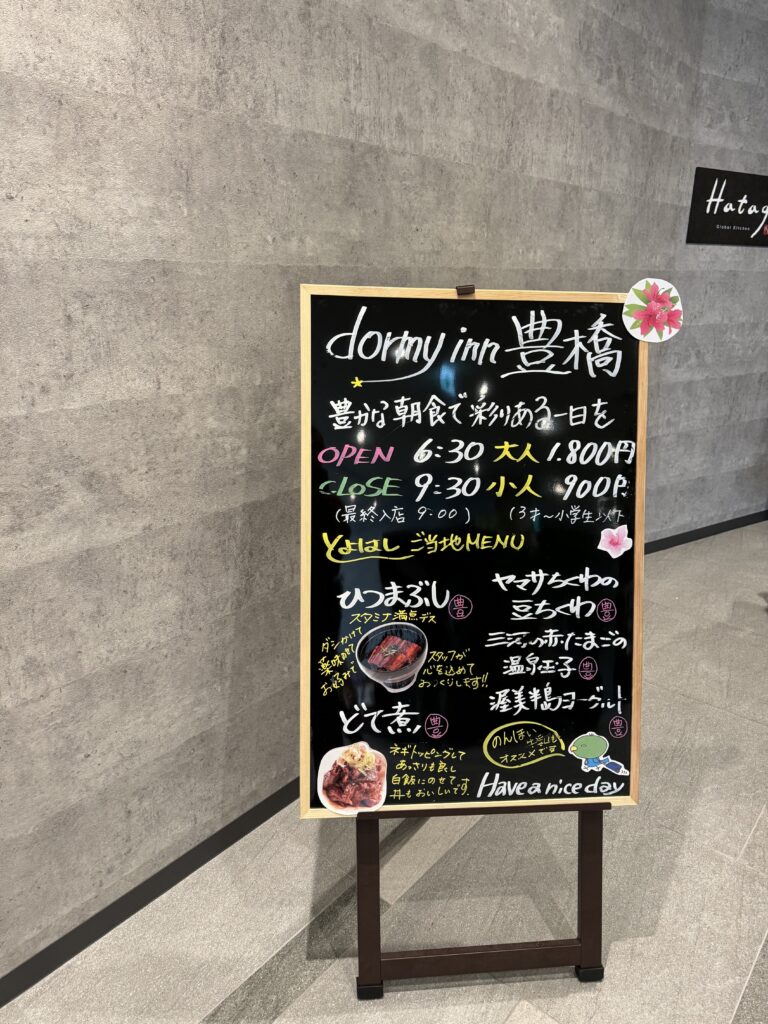 Hatag
Global Kitchen
dormy inn 豊橋
豊かな朝食で彩りある一日を
OPEN 6:30 大人 1.800円
CLOSE 9:30 小人 900円
(最終入店 9:00) (3才～小学生以下
とよはし ご当地MENU
ひつまぶし 豊
スタミナ満点デス
ダシかけて
薬味のせて
お好みで
スタッフが
心を込めて
おつくりします!!
どて煮 豊
ネギトッピングして
あっさりも良し
白飯にのせて
丼もおいしいです
ヤマサちくわの
豆ちくわ 豊
三河の赤たまごの
温泉玉子 豊
渥美半島ヨーグルト
豊
のんほい
オススメです
Have a nice day